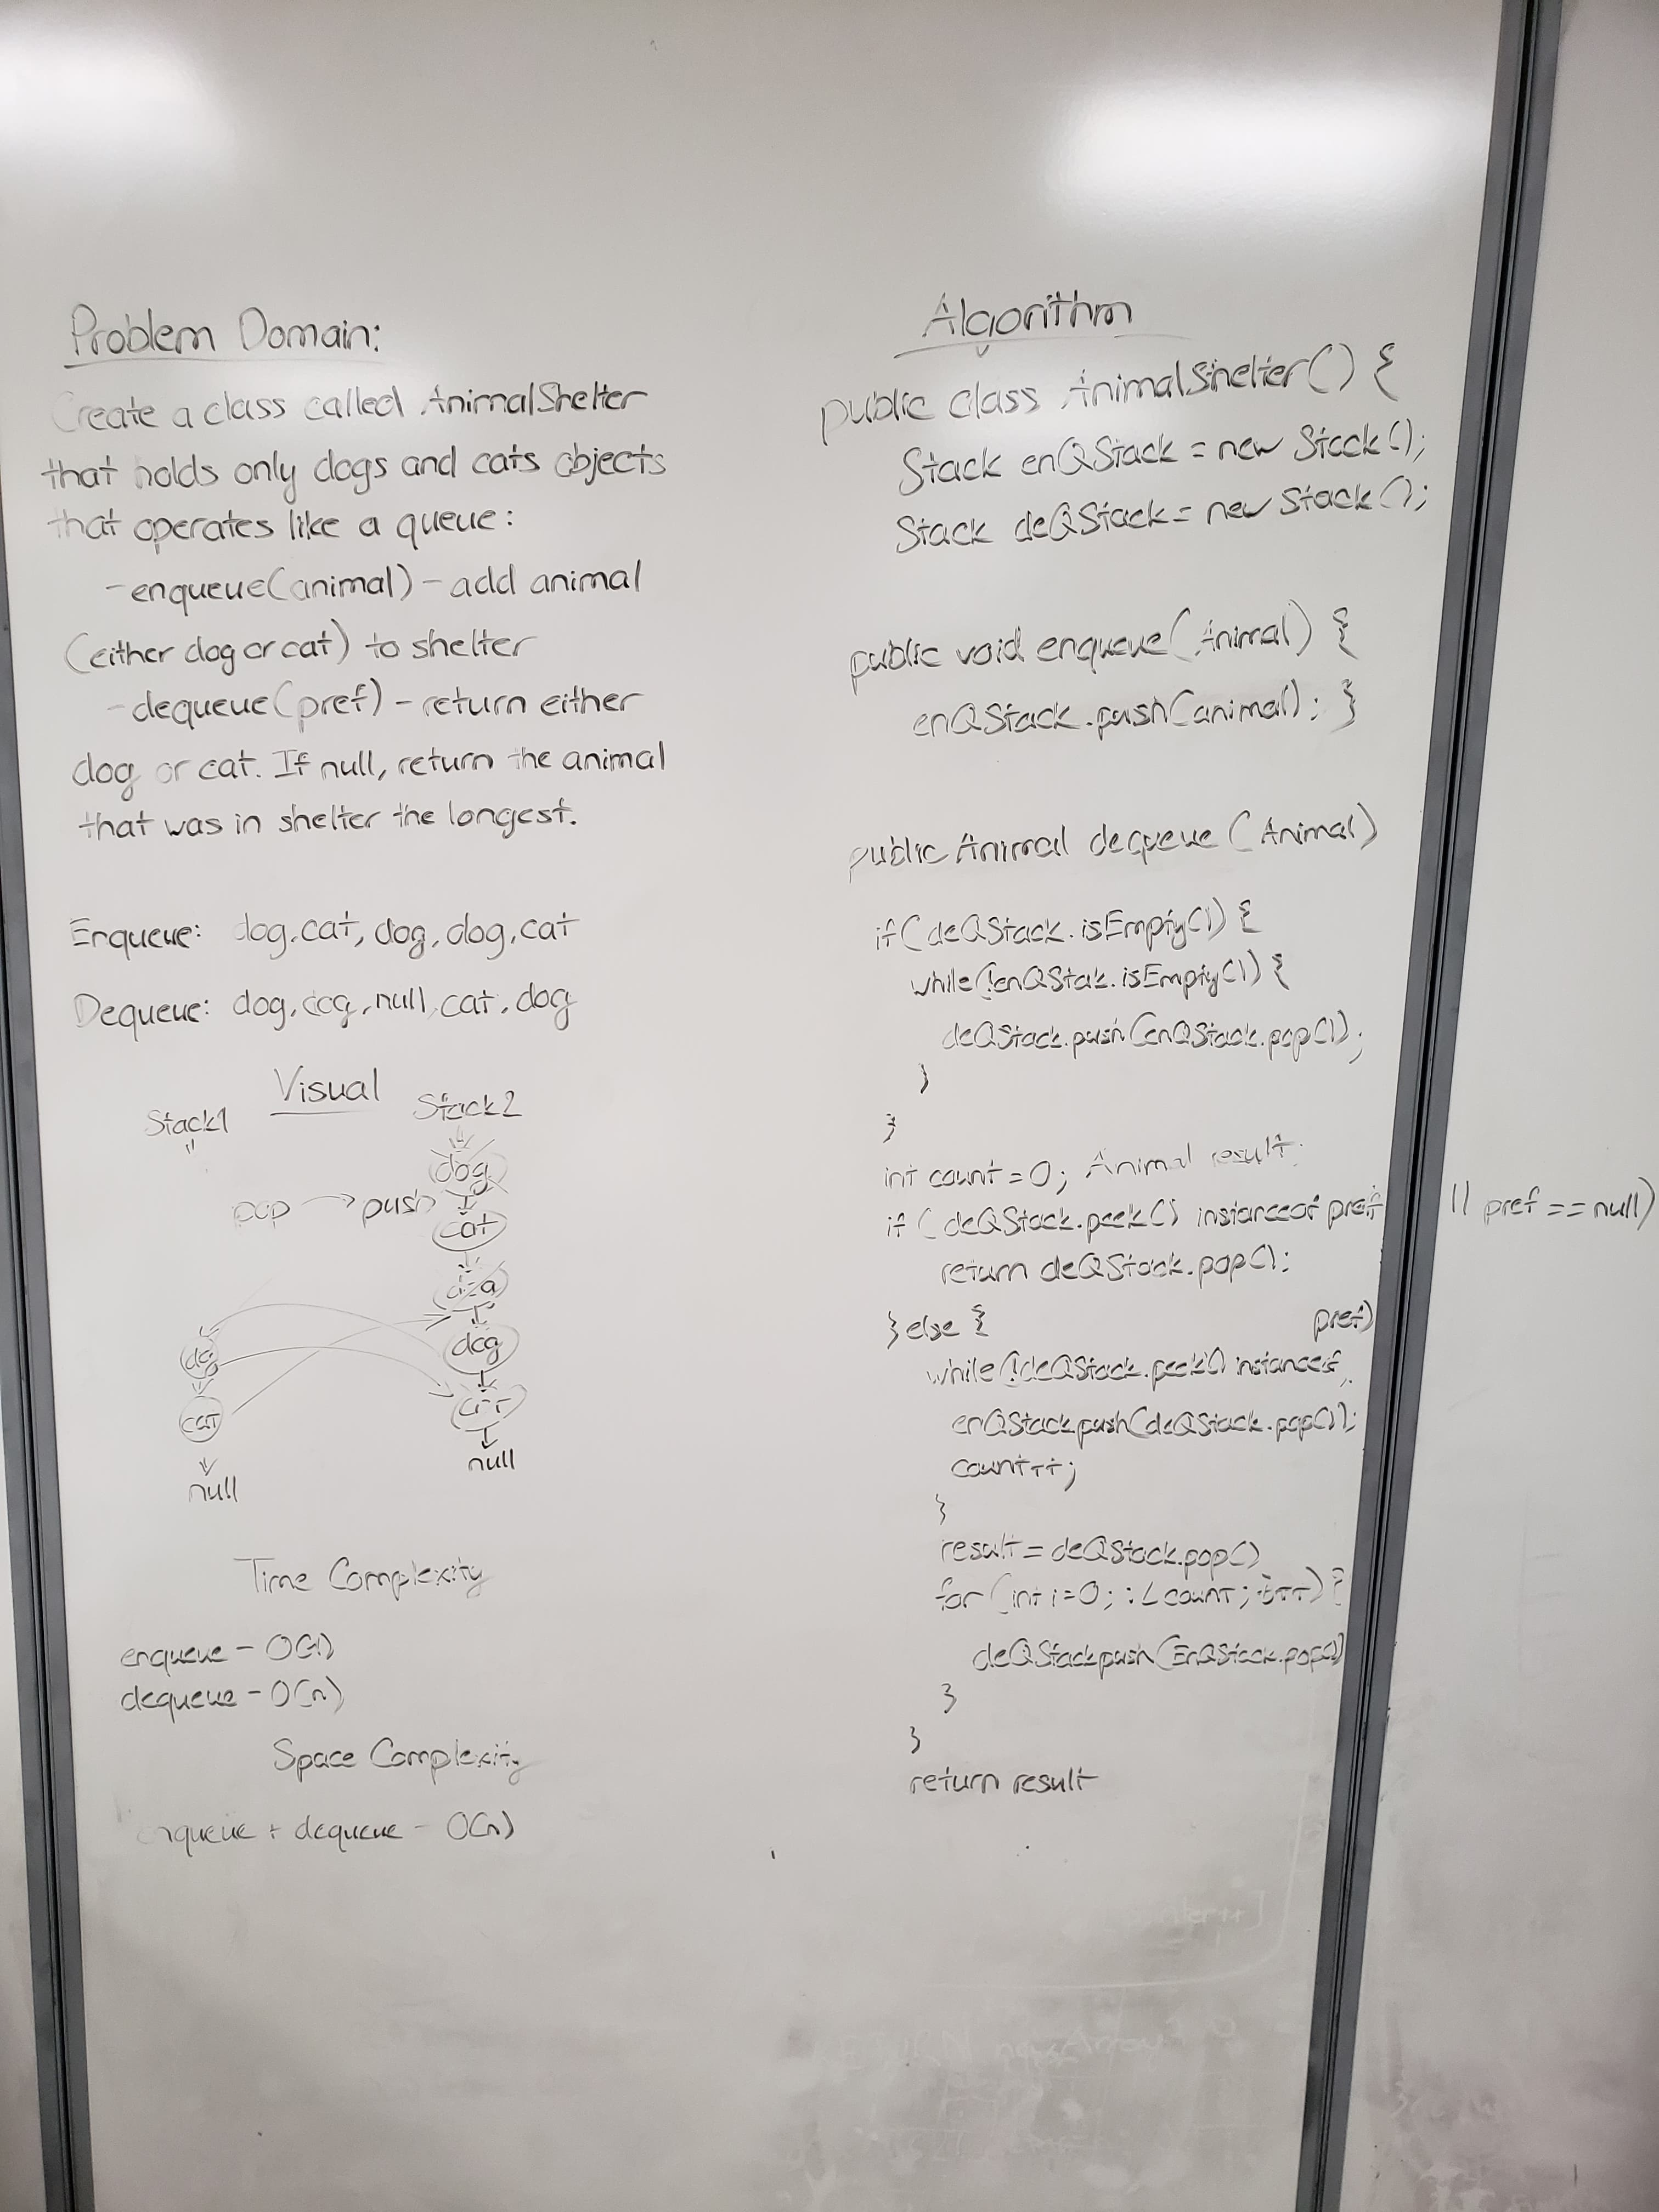 Problem Domain:
Create a class called AnimalShelter
that holds only dogs and cats objects
that operates like a queue:
- enqueue(animal) - add animal
(either dog or cat) to shelter
- dequeue(pref) - return either
dog or cat. If null, return the animal
that was in shelter the longest.
Enqueue: dog, cat, dog, dog, cat
Dequeue: dog, dog, null, cat, dog
Visual
Stack1 Stack2
dog
pop → push
cat
dog
dog
cat
cat
null
null
Time Complexity
enqueue - O(1)
dequeue - O(n)
Space Complexity
enqueue + dequeue - O(n)
Algorithm
public class AnimalShelter() {
Stack enQStack = new Stack();
Stack deQStack = new Stack();
public void enqueue(Animal) {
enQStack.push(animal); }
public Animal dequeue (Animal)
if(deQStack.isEmpty()) {
while(!enQStak.isEmpty()) {
deQStack.push(enQStack.pop());
}
}
int count = 0; Animal result;
if (deQStack.peek() instanceof pref || pref == null)
return deQStack.pop();
} else {
while(!deQStack.peek() instanceof pref)
enQStack.push(deQStack.pop());
count++;
}
result = deQStack.pop()
for (int i=0; i < count; i++) {
deQStack.push(EnQStack.pop()
}
}
return result